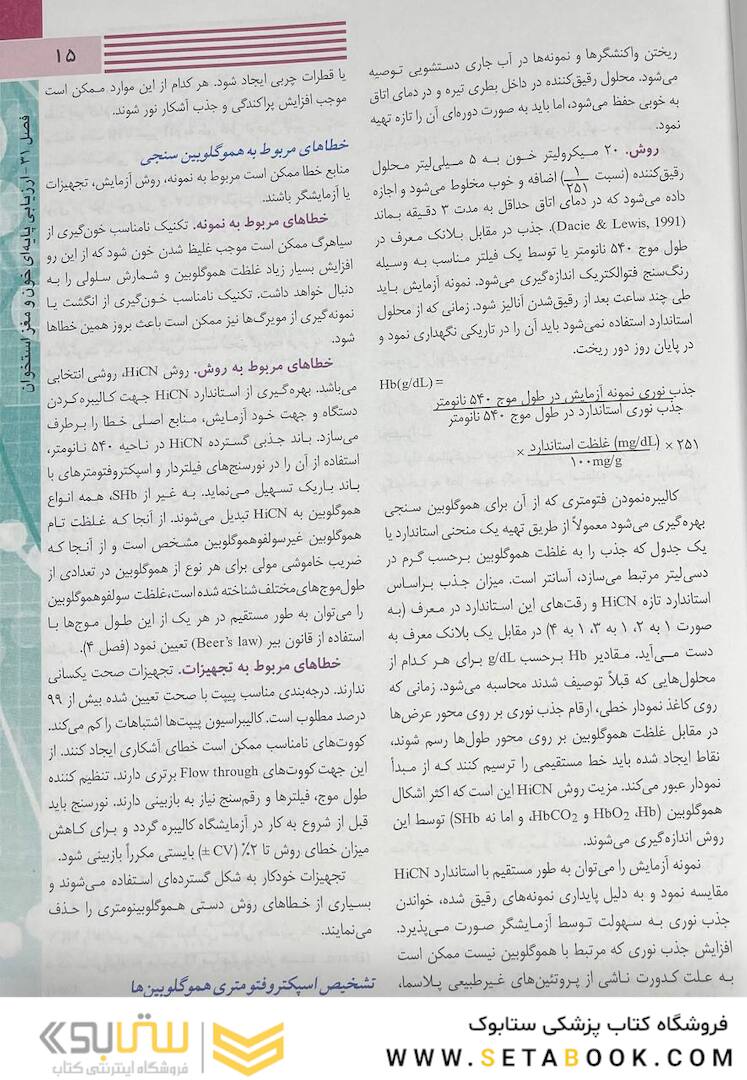 ۱۵
فصل ۳۱ - ارزیابی پایه‌ای خون و مغز استخوان
ریختن واکنشگرها و نمونه‌ها در آب جاری دستشویی توصیه
می‌شود. محلول رقیق‌کننده در داخل بطری تیره و در دمای اتاق
به خوبی حفظ می‌شود، اما باید به صورت دوره‌ای آن را تازه تهیه
نمود.
روش. ۲۰ میکرولیتر خون به ۵ میلی‌لیتر محلول
رقیق‌کننده (نسبت ۱/۲۵۱) اضافه و خوب مخلوط می‌شود و اجازه
داده می‌شود که در دمای اتاق حداقل به مدت ۳ دقیقه بماند
(Dacie & Lewis, 1991). جذب در مقابل بلانک معرف در
طول موج ۵۴۰ نانومتر یا توسط یک فیلتر مناسب به وسیله
رنگ‌سنج فتوالکتریک اندازه‌گیری می‌شود. نمونه آزمایش باید
طی چند ساعت بعد از رقیق‌شدن آنالیز شود. زمانی که از محلول
استاندارد استفاده نمی‌شود باید آن را در تاریکی نگهداری نمود و
در پایان روز دور ریخت.
Hb(g/dL) =
جذب نوری نمونه آزمایش در طول موج ۵۴۰ نانومتر
جذب نوری استاندارد در طول موج ۵۴۰ نانومتر
× غلظت استاندارد (mg/dL) × ۲۵۱
۱۰۰mg/g
کالیبره‌نمودن فتومتری که از آن برای هموگلوبین سنجی
بهره‌گیری می‌شود معمولاً از طریق تهیه یک منحنی استاندارد یا
یک جدول که جذب را به غلظت هموگلوبین برحسب گرم در
دسی‌لیتر مرتبط می‌سازد، آسانتر است. میزان جذب براساس
استاندارد تازه HiCN و رقت‌های این استاندارد در معرف (به
صورت ۱ به ۲، ۱ به ۳، ۱ به ۴) در مقابل یک بلانک معرف به
دست می‌آید. مقادیر Hb برحسب g/dL برای هر کدام از
محلول‌هایی که قبلاً توصیف شدند محاسبه می‌شود. زمانی که
روی کاغذ نمودار خطی، ارقام جذب نوری بر روی محور عرض‌ها
در مقابل غلظت هموگلوبین بر روی محور طول‌ها رسم شوند،
نقاط ایجاد شده باید خط مستقیمی را ترسیم کنند که از مبدأ
نمودار عبور می‌کند. مزیت روش HiCN این است که اکثر اشکال
هموگلوبین (Hb، HbO2 و HbCO2، و اما نه SHb) توسط این
روش اندازه‌گیری می‌شوند.
نمونه آزمایش را می‌توان به طور مستقیم با استاندارد HiCN
مقایسه نمود و به دلیل پایداری نمونه‌های رقیق شده، خواندن
جذب نوری به سهولت توسط آزمایشگر صورت می‌پذیرد.
افزایش جذب نوری که مرتبط با هموگلوبین نیست ممکن است
به علت کدورت ناشی از پروتئین‌های غیرطبیعی پلاسما،
یا قطرات چربی ایجاد شود. هر کدام از این موارد ممکن است
موجب افزایش پراکندگی و جذب آشکار نور شوند.
خطاهای مربوط به هموگلوبین سنجی
منابع خطا ممکن است مربوط به نمونه، روش آزمایش، تجهیزات
یا آزمایشگر باشند.
خطاهای مربوط به نمونه. تکنیک نامناسب خون‌گیری از
سیاهرگ ممکن است موجب غلیظ شدن خون شود که از این رو
افزایش بسیار زیاد غلظت هموگلوبین و شمارش سلولی را به
دنبال خواهد داشت. تکنیک نامناسب خون‌گیری از انگشت یا
نمونه‌گیری از مویرگ‌ها نیز ممکن است باعث بروز همین خطاها
شود.
خطاهای مربوط به روش. روش HiCN، روشی انتخابی
می‌باشد. بهره‌گیری از استاندارد HiCN جهت کالیبره‌کردن
دستگاه و جهت خود آزمایش، منابع اصلی خطا را برطرف
می‌سازد. باند جذبی گسترده HiCN در ناحیه ۵۴۰ نانومتر،
استفاده از آن را در نورسنج‌های فیلتردار و اسپکتروفتومترهای با
باند باریک تسهیل می‌نماید. به غیر از SHb، همه انواع
هموگلوبین به HiCN تبدیل می‌شوند. از آنجا که غلظت تام
هموگلوبین غیرسولفوهموگلوبین مشخص است و از آنجا که
ضریب خاموشی مولی برای هر نوع از هموگلوبین در تعدادی از
طول‌موج‌های مختلف شناخته شده است، غلظت سولفوهموگلوبین
را می‌توان به طور مستقیم در هر یک از این طول موج‌ها با
استفاده از قانون بیر (Beer's law) تعیین نمود (فصل ۴).
خطاهای مربوط به تجهیزات. تجهیزات صحت یکسانی
ندارند. درجه‌بندی مناسب پیپت با صحت تعیین شده بیش از ۹۹
درصد مطلوب است. کالیبراسیون پیپت‌ها اشتباهات را کم می‌کند.
کووت‌های نامناسب ممکن است خطای آشکاری ایجاد کنند. از
این جهت کووت‌های Flow through برتری دارند. تنظیم کننده
طول موج، فیلترها و رقم‌سنج نیاز به بازبینی دارند. نورسنج باید
قبل از شروع به کار در آزمایشگاه کالیبره گردد و برای کاهش
میزان خطای روش تا ۲٪ (CV ±) بایستی مکرراً بازبینی شود.
تجهیزات خودکار به شکل گسترده‌ای استفاده می‌شوند و
بسیاری از خطاهای روش دستی هموگلوبینومتری را حذف
می‌نمایند.
تشخیص اسپکتروفتومتری هموگلوبین‌ها
فروشگاه کتاب پزشکی ستابوک
WWW.SETABOOK.COM
ستابوک
فروشگاه اینترنتی کتاب